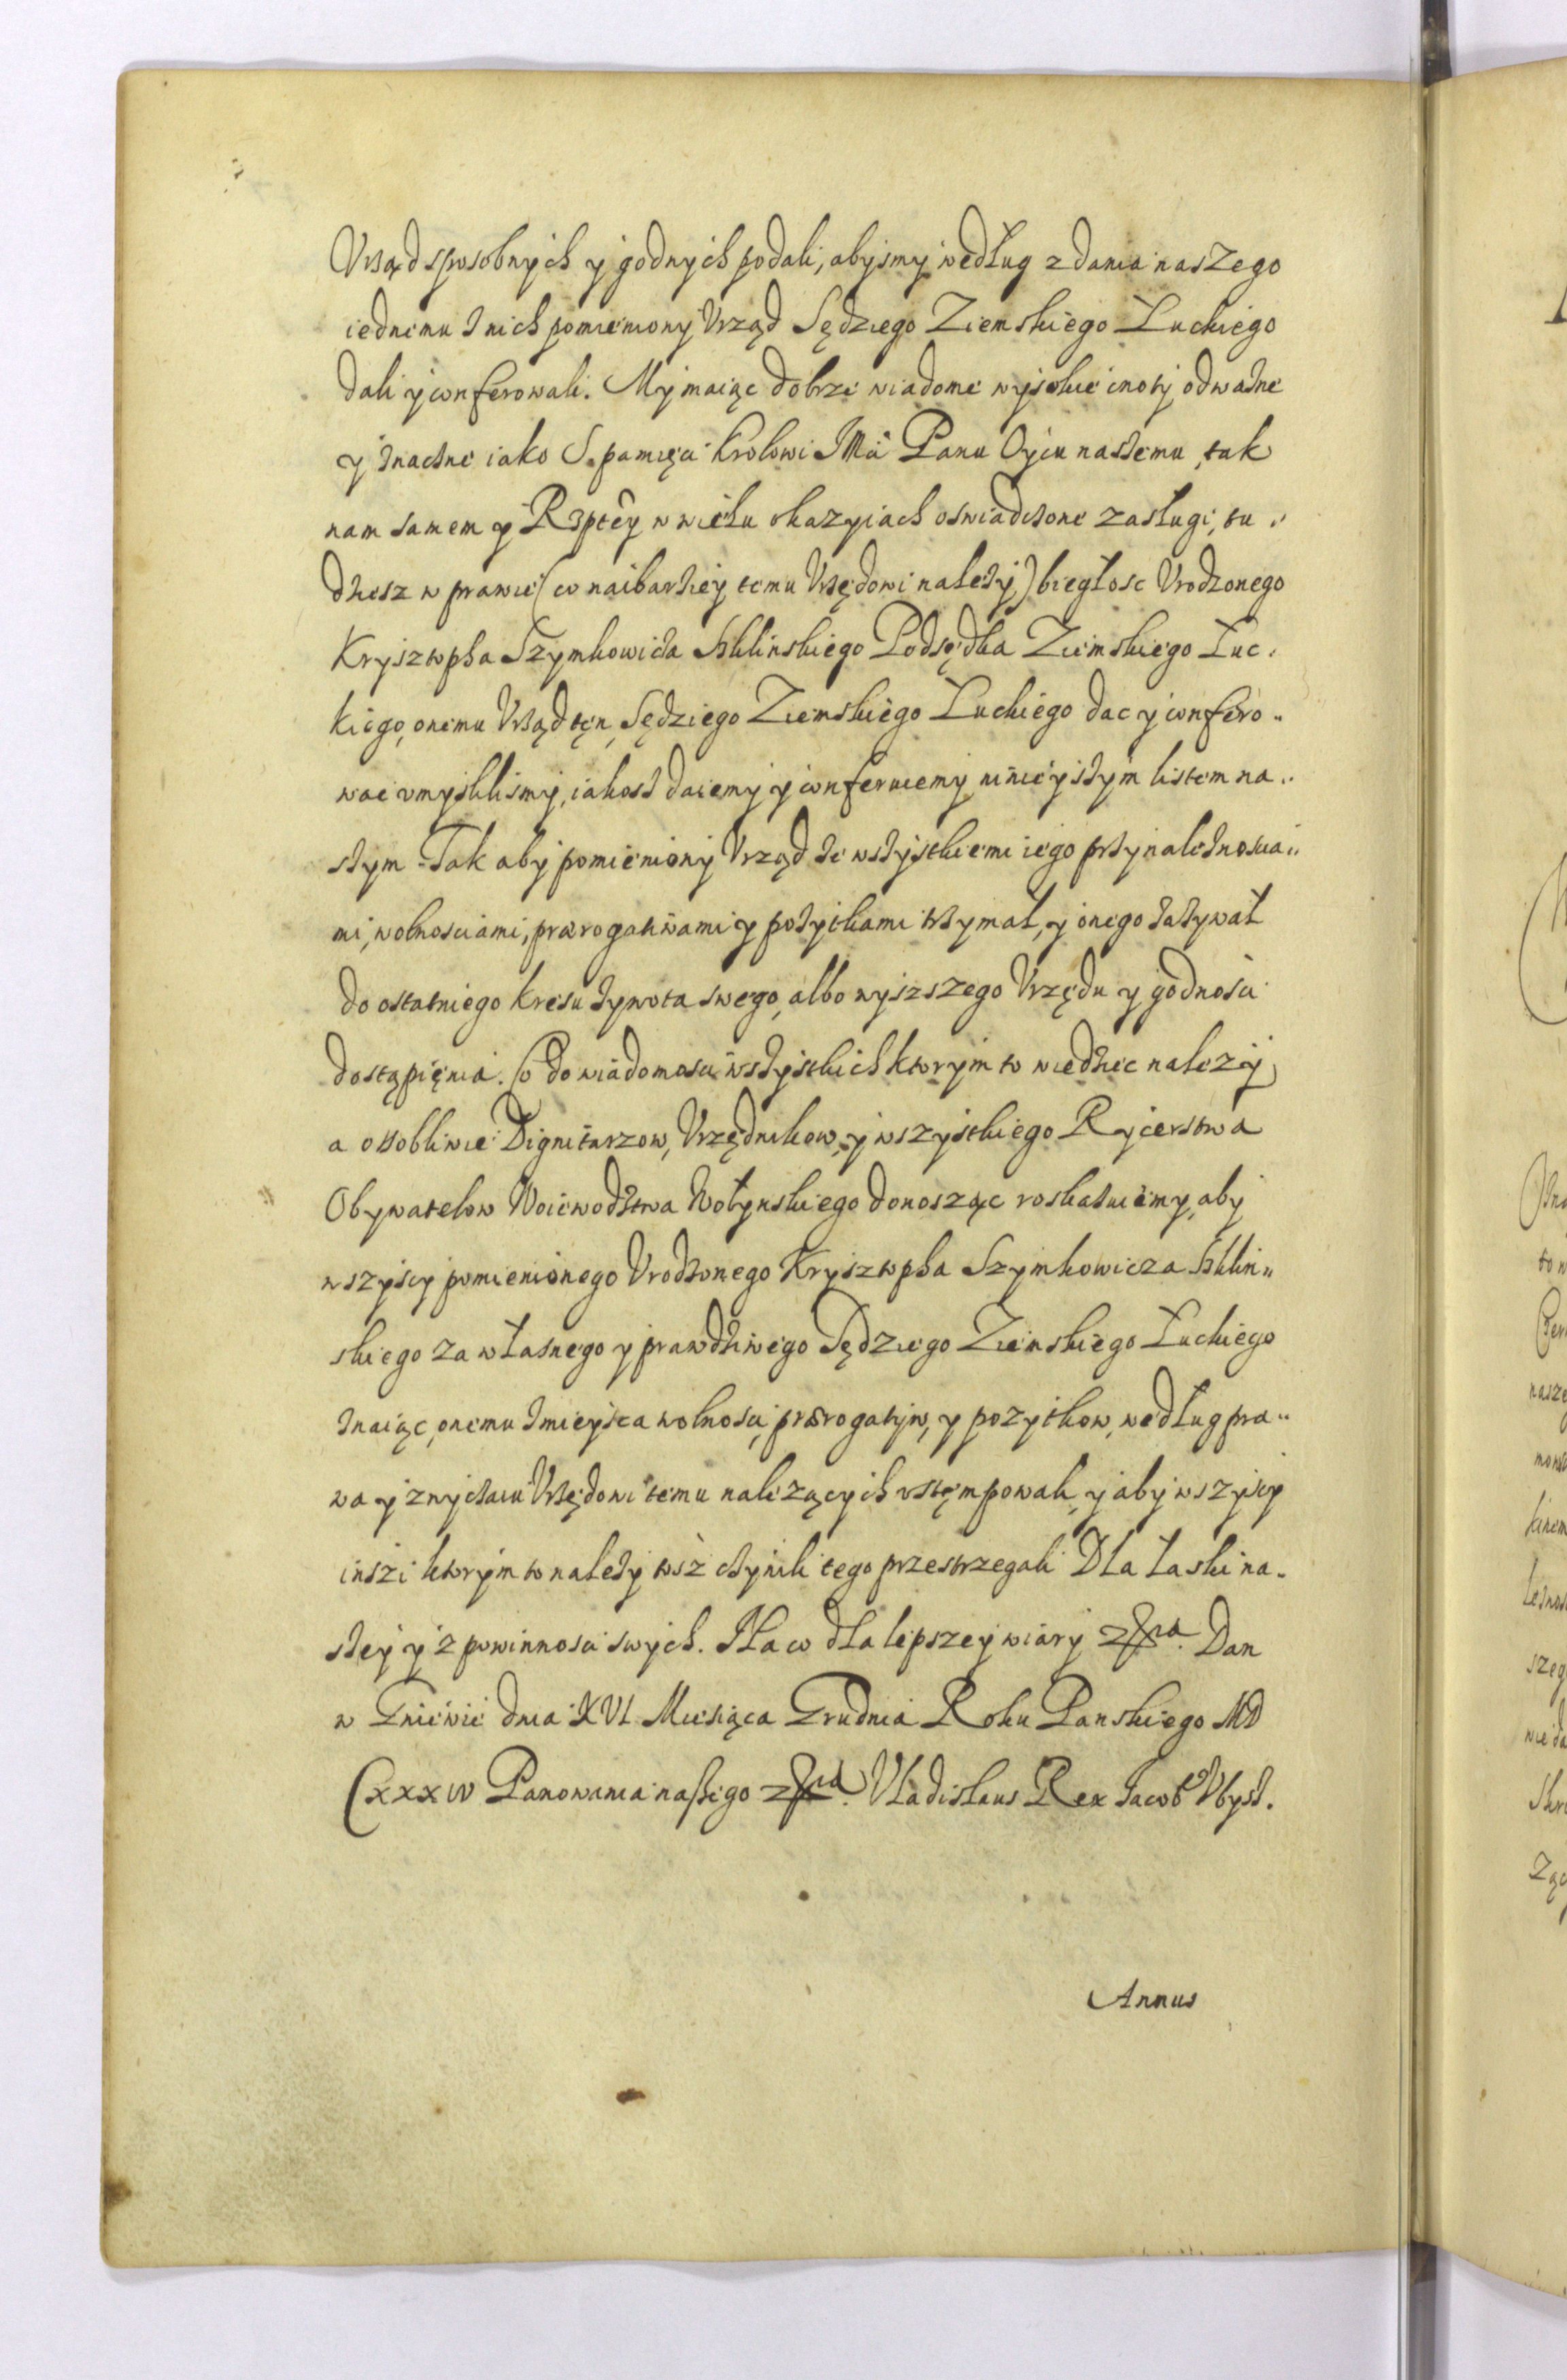 Vrząd sposobnych y godnych podali, abysmy według zdania naszego
iednemu z nich pomieniony Vrząd Sędziego Ziemskiego Łuckiego
dali y conferowali. My maiąc dobrze wiadome wysokie cnoty odważne
y znaczne iako S. pamięci Krolowi JMci Panu Oycu naszemu, tak
nam samem y Rzptey w wielu okazyiach oswiadczone zasługi, tu„
dziesz w prawie (co naibarziey temu Vrzędowi należy) biegłosc Vrodzonego
Krysztopha Szymkowicza Szklinskiego Podsędka Ziemskiego Łuc„
kiego, onemu Vrząd ten, Sędziego Ziemskiego Łuckiego dac y confero„
wac vmyslilismy, iakosz daiemy y conferuiemy ninieyszym listem na„
szym. Tak aby pomieniony Vrząd ze wszystkiemi iego przynależnoscia„
mi, wolnosciami, prærogatiwami y pożytkami trzymał, y onego zażywał
do ostatniego kresu żywota swego, albo wyszszego Vrzędu y godnosci
dostąpięnia. Co do wiadomosci wszystkich ktorym to wiedziec należy,
a ossobliwie Dignitarzow, Vrzędnikow, y wszystkiego Rycerstwa
Obywatelow Woiewodztwa Wołynskiego donosząc roskazuiemy, aby
wszyscy pomienionego Vrodzonego Krysztopha Szymkowicza Szklin„
skiego za własnego y prawdziwego Sędziego Ziemskiego Łuckiego
znaiąc, onemu zmieysca wolnosci, prærogatyw, y pozytkow, według pra„
wa y zwyczaiu Vrzędowi temu należących vstęmpowali, y aby wszyscy
inszi ktorym to należy tosz czynili tego przestrzegali Dla łaski na„
szey y z powinnosci swych. Na co dla lepszey wiary etc. Dan
w Gniewie dnia XVI Miesiąca Grudnia Roku Panskiego MD
CXXXIV Panowania naszego etc. Vladislaus Rex Jacob Vbysz.
Annus